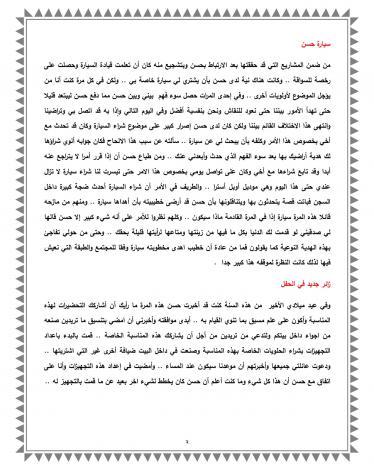 سيارة حسن
من ضمن المشاريع التي قد حققتها بعد الارتباط بحسن وبتشجيع منه كان أن تعلمت قيادة السيارة وحصلت على
رخصة للسواقة .. وكانت هناك نية لدى حسن بأن يشتري لي سيارة خاصة بي .. ولكن في كل مرة كنت أنا من
يؤجل الموضوع لأولويات أخرى .. وفي إحدى المرات حصل سوء فهم بيني وبين حسن مما دفع حسن ليبتعد قليلا
حتى تهدأ الأمور بيننا حتى نعود للنقاش ونحن بنفسية أفضل وفي اليوم التالي وإذا به قد اتصل بي وتراضينا
وانتهى هذا الاختلاف القائم بيننا ولكن كان لدى حسن إصرار كبير على موضوع شراء السيارة وكان قد تحدث مع
أخي بخصوص هذا الأمر وكلفه بأن يبحث لي عن سيارة .. سألته عن سبب هذا الالحاح فكان جوابه أنوي شراؤها
لك هدية أراضيك بها بعد سوء الفهم الذي حدث وأبعدني عنك .. ومن طباع حسن أن إذا قرر أمرا لا يتراجع عنه
أبدا وقد تابع شراءها مع أخي وكان على تواصل يومي بخصوص هذا الامر حتى تيسرت لنا شراء سيارة لا تزال
عندي حتى هذا اليوم وهي موديل أوبل أسترا .. والطريف في الأمر أن السيارة أحدث ضجة كبيرة داخل
السجن فباتت قصة يتحدثون بها ويتناقلونها بأن حسن قد أرضى خطيبته بأن أهداها سيارة .. ومنهم من مازحه
قائلا هذه المرة سيارة إذا في المرة القادمة ماذا سيكون .. وكلهم نظروا للأمر على أنه شيء كبير إلا حسن قالها
لي صدقيني لو قدمت لك الدنيا بكل ما فيها من زينتها ومتاعها لرأيتها قليلة بحقك .. وحتى من حولي تفاجئ
بهذه الهدية النوعية كما يقولون فما من عادة أن خطيب اهدى مخطوبته سيارة وفقا للمجتمع والطبقة التي نعيش
فيها لذلك كانت النظرة لموقفه هذا كبير جدا .
زائر جديد في الحفل
وفي عيد ميلادي الأخير من هذه السنة كنت قد أخبرت حسن هذه المرة ما رأيك أن أشاركك التحضيرات لهذه
المناسبة وأكون على علم مسبق بما تنوي القيام به .. أبدى موافقته وأخبرني أن امضي بتنسيق ما تريدين صنعه
من اجواء داخل بيتكم ولتدعي من تريدين من أجل أن يشاركك هذه المناسبة الخاصة .. قمت بالبدء باعداد
التجهيزات بشراء الحلويات الخاصة بهذه المناسبة وصنعت في داخل البيت ضيافة أخرى غير التي اشتريتها ..
ودعوت عائلتي جميعها وأخبرتهم أن موعدنا سيكون عند المساء .. وأمضيت في إعداد هذه التجهيزات وأنا على
اتفاق مع حسن أن هذا كل شيء وما كنت أعلم أن حسن كان يخطط لشيء اخر بعيد عن ما قمت بالتجهيز له ..